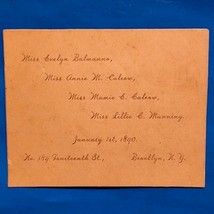 Miss Evelyn Balmanno,
Miss Annie M. Calrow,
Miss Mamie C. Calrow,
Miss Lillie E. Manning.
January 1st, 1890.
No. 189 Fourteenth St., Brooklyn, N. Y.